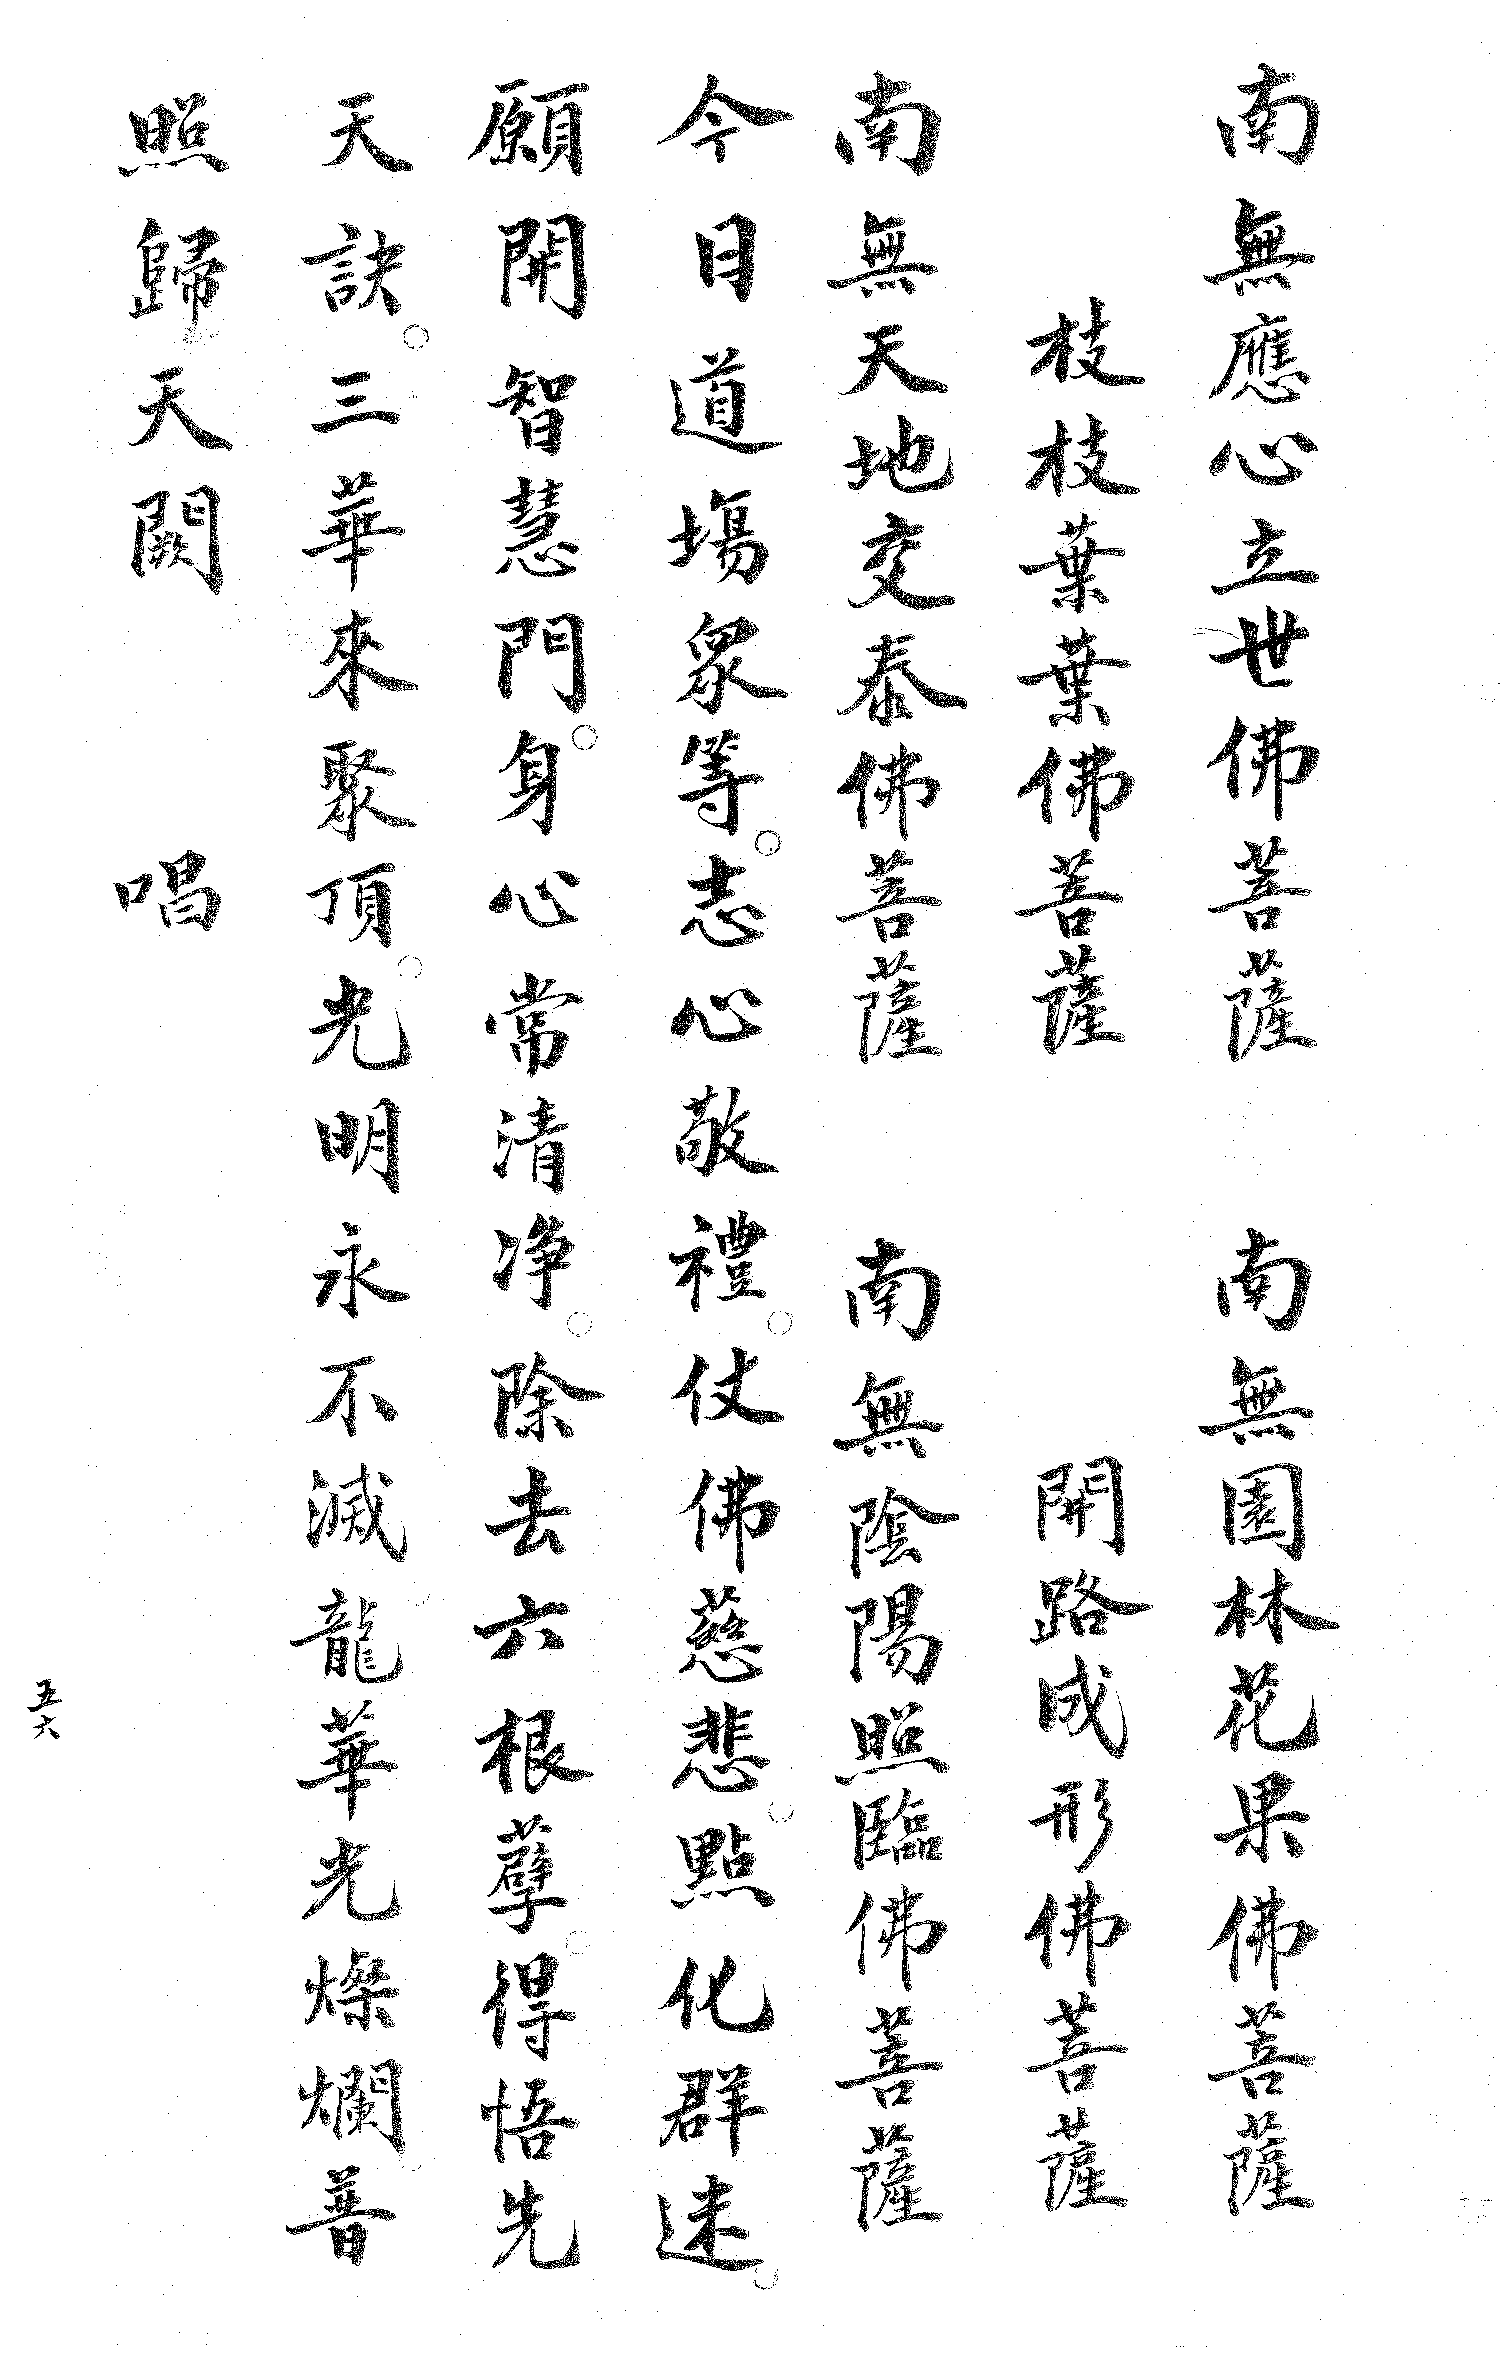 南無應心立世佛菩薩　南無園林花果佛菩薩
枝枝葉葉佛菩薩　開路成形佛菩薩
南無天地交泰佛菩薩　南無陰陽照臨佛菩薩
今日道場眾等。志心敬禮。仗佛慈悲。點化群迷。
願開智慧門。身心常清净。除去六根孽。得悟先
天訣。三華來聚頂。光明永不滅龍華光燦爛普
照歸天闕　唱
五六